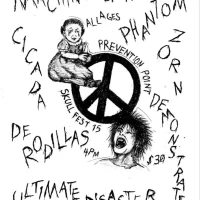 ALL AGES
PHANTOM
CICADA
PREVENTION POINT
ZORN
SKULLFEST 15
DEMONSTRATE
DE RODILLAS
4PM
$30
ULTIMATE DISASTER